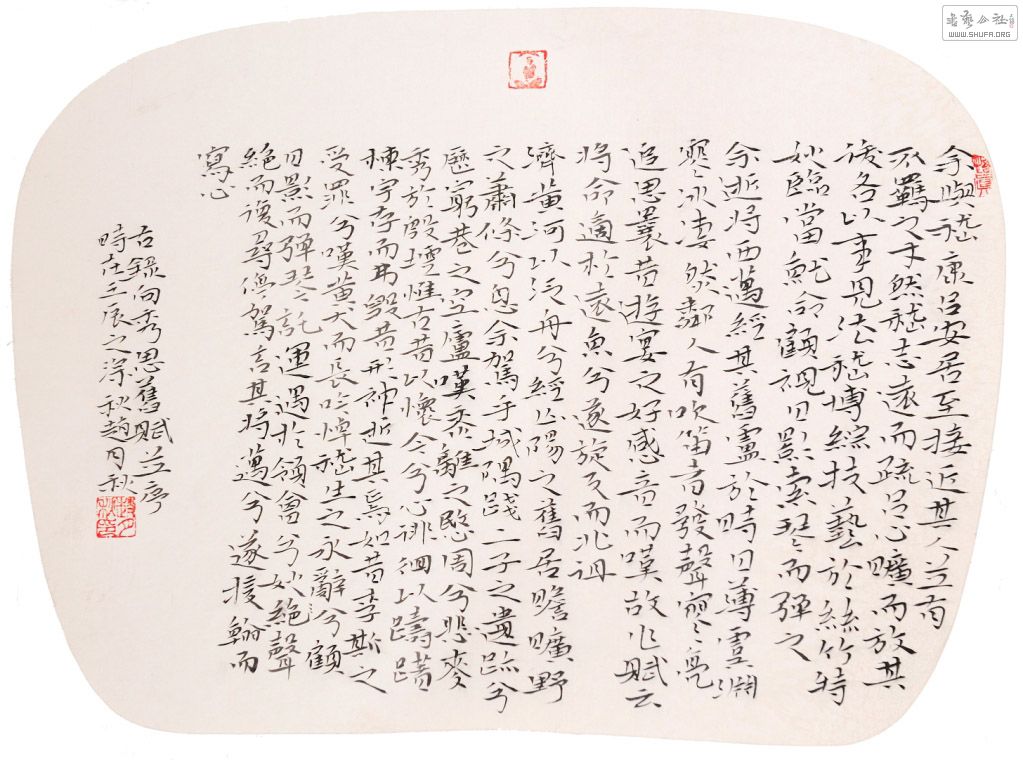 余與嵇康呂安居至接近其人並有
不羈之才然嵇志遠而疏呂心曠而放其
後各以事見法嵇博綜技藝於絲竹特
妙臨當就命顧視日影索琴而彈之
余逝將西邁經其舊廬於時日薄虞淵
寒冰淒然鄰人有吹笛者發聲寥亮
追思曩昔遊宴之好感音而嘆故作賦云
將命適於遠京兮遂旋反而北徂
濟黃河以泛舟兮經山陽之舊居瞻曠野
之蕭條兮息余駕乎城隅踐二子之遺跡兮
歷窮巷之空廬嘆黍離之愍周兮悲麥
秀於殷墟惟古昔以懷今兮心徘徊以躊躇
棟宇存而弗毀昔形神逝其焉如昔李斯之
受罪兮嘆黃犬而長吟悼嵇生之永辭兮顧
日影而彈琴託運遇於領會兮妙絕聲
絕而復尋停駕言其將邁兮遂援翰而
寫心
右錄向秀思舊賦並序
時在壬辰之深秋趙月秋
書藝公社
WWW.SHUFA.ORG